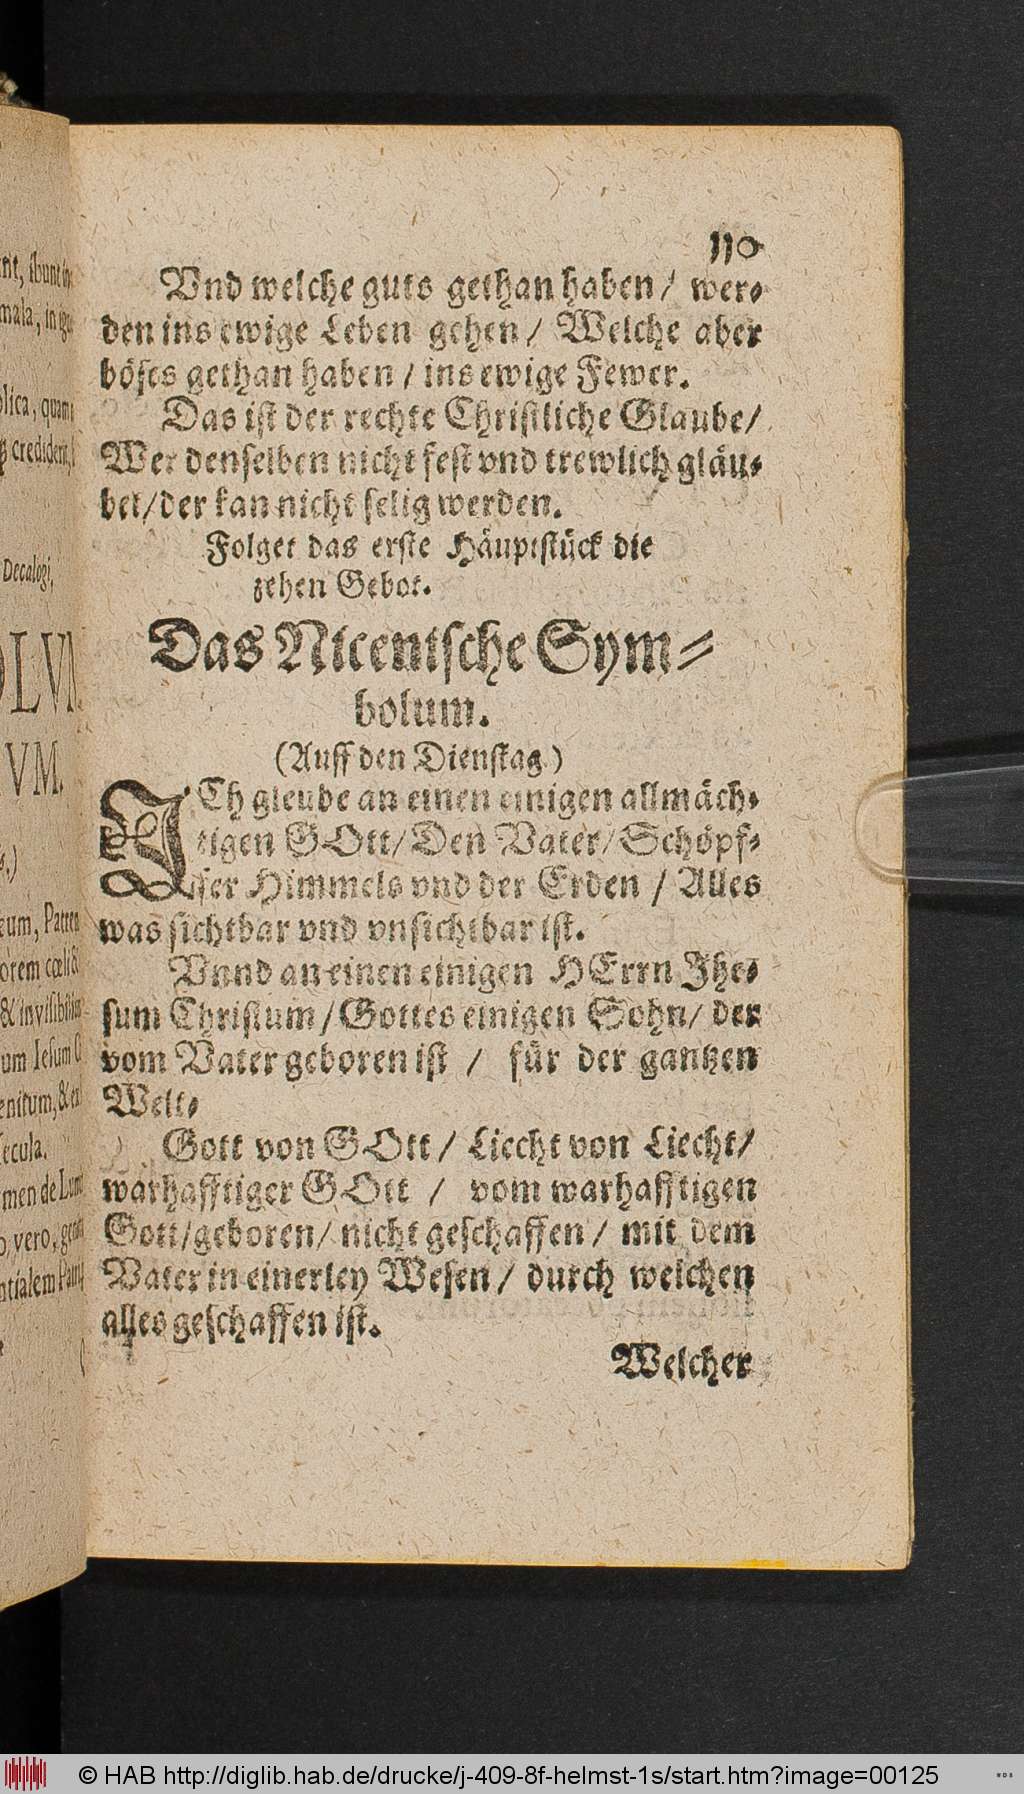 110
Vnd welche guts gethan haben / wer⸗
den ins ewige Leben gehen / Welche aber
böses gethan haben / ins ewige Fewer.
Das ist der rechte Christliche Glaube /
Wer denselben nicht fest vnd trewlich gläu⸗
bet / der kan nicht selig werden.
Folget das erste Häuptstück die
zehen Gebot.
Das Nicenische Sym⸗
bolum.
(Auff den Dienstag)
ICh gleube an einen einigen allmäch⸗
tigen GOtt / Den Vater / Schöpf⸗
fer Himmels vnd der Erden / Alles
was sichtbar vnd vnsichtbar ist.
Vnnd an einen einigen HErrn Jhe⸗
sum Christum / Gottes einigen Sohn / der
vom Vater geboren ist / für der gantzen
Welt⸗
Gott von GOtt / Liecht von Liecht /
warhafftiger GOtt / vom warhafftigen
Gott / geboren / nicht geschaffen / mit dem
Vater in einerley Wesen / durch welchen
alles geschaffen ist.
Welcher
nt, ibunt in
mala, in
olica, quam
crediderit,
Decalogi,
OLVM
VM.
s.)
eum, Patrem
orem cœli &
& invisibilium
um Iesum
enitum, & ex
secula.
men de Lum
o vero, gen
ntialem Patri
© HAB http://diglib.hab.de/drucke/j-409-8f-helmst-1s/start.htm?image=00125